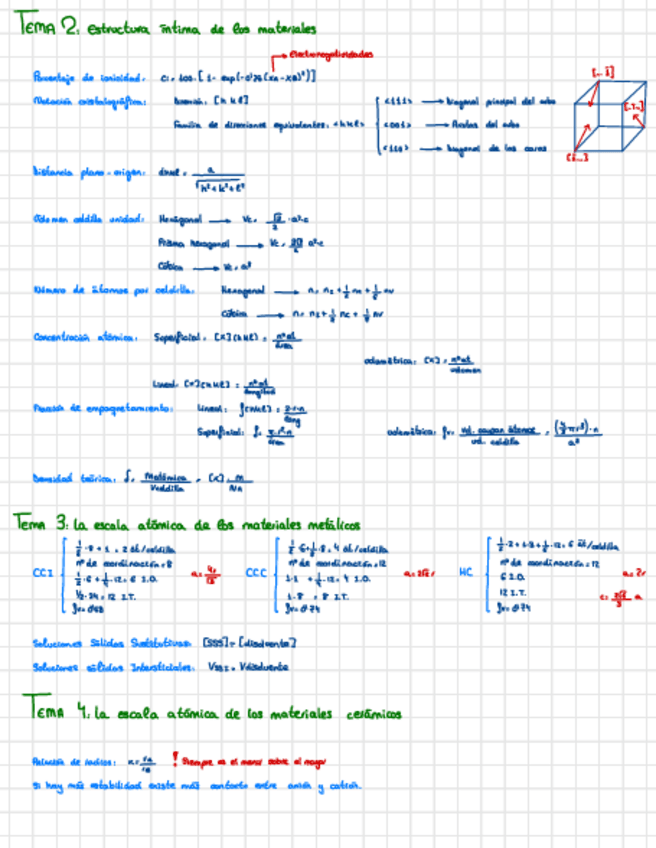 TEMA 2: estructura íntima de los materiales
electronegatividades
Porcentaje de ionicidad: CI = 100·[1 - exp(-0'25(xa-xb)²)]
Notación cristalográfica: [h k l]
Familia de direcciones equivalentes: <h k l>
<111> → Diagonal principal del cubo
<001> → Aristas del cubo
<110> → Diagonal de las caras
Distancia plano-origen: dhkl = a / √(h²+k²+l²)
Volumen celdilla unidad: Hexagonal → Vc =
Prisma hexagonal → Vc =
Cúbica → Vc = a³
Número de átomos por celdilla: Hexagonal → n = nI + 1/2 nc + 1/6 nv
Cúbica → n = nI + 1/2 nc + 1/8 nv
Concentración atómica: Superficial: [X](hkl) = nº at / área
Volumétrica: [X] = nº at / volumen
Lineal: [X][hkl] = nº at / longitud
Fracción de empaquetamiento: Lineal: f[hkl] = 2·r·n / long
Superficial: f = π·r²·n / área
Volumétrica: fv = vol. ocupan átomos / vol. celdilla = (4/3 πr³)·n / a³
Densidad teórica: ρ = Matómica / Vceldilla = [X]·m / NA
Tema 3: la escala atómica de los materiales metálicos
CCI
1/8·8 + 1 = 2 at/celdilla
nº de coordinación = 8
1/2·6 + 1/4·12 = 6 I.O.
1/2·24 = 12 I.T.
fv = 0'68
a = 4r/√3
CCC
1/2·6 + 1/8·8 = 4 at/celdilla
nº de coordinación = 12
1·1 + 1/4·12 = 4 I.O.
1·8 = 8 I.T.
fv = 0'74
a = 2√2 r
HC
1/2·2 + 1·3 + 1/6·12 = 6 at/celdilla
nº de coordinación = 12
6 I.O.
12 I.T.
fv = 0'74
a = 2r
Soluciones Sólidas Sustitutivas: [SSS] = [disolvente]
Soluciones sólidas Intersticiales: VSSI = Vdisolvente
TEMA 4: la escala atómica de los materiales cerámicos
Relación de radios: ! Siempre es el menor sobre el mayor
si hay más estabilidad existe más contacto entre anión y catión.